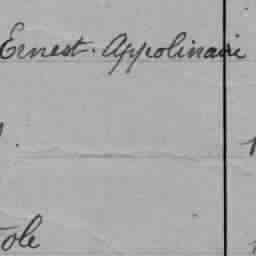 Ernest. Appolinaire
ole